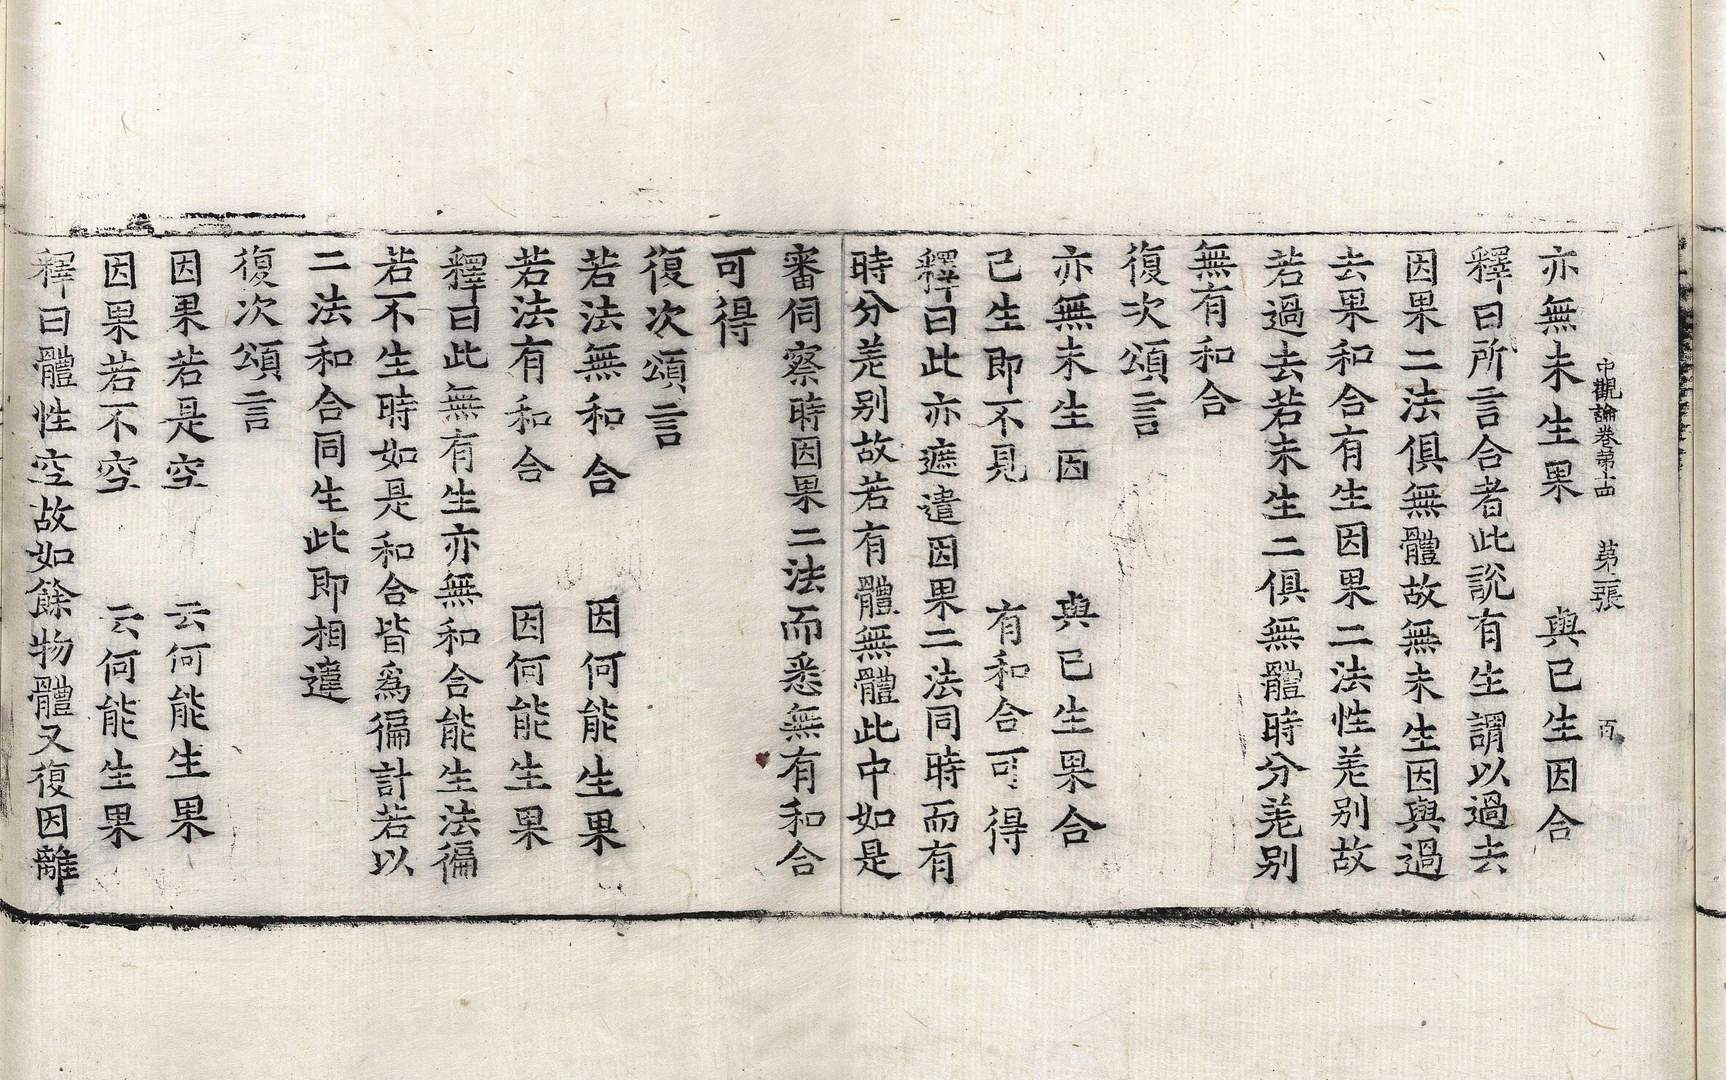 中觀論卷第十四　第三張　百
亦無未生果　與已生因合
釋曰所言合者此說有生謂以過去
因果二法俱無體故無未生因與過
去果和合有生因果二法性差別故
若過去若未生二俱無體時分差別
無有和合
復次頌言
亦無未生因　與已生果合
已生即不見　有和合可得
釋曰此亦遮遣因果二法同時而有
時分差別故若有體無體此中如是
審伺察時因果二法而悉無有和合
可得
復次頌言
若法無和合　因何能生果
若法有和合　因何能生果
釋曰此無有生亦無和合能生法徧
若不生時如是和合皆爲徧計若以
二法和合同生此即相違
復次頌言
因果若是空　云何能生果
因果若不空　云何能生果
釋曰體性空故如餘物體又復因離